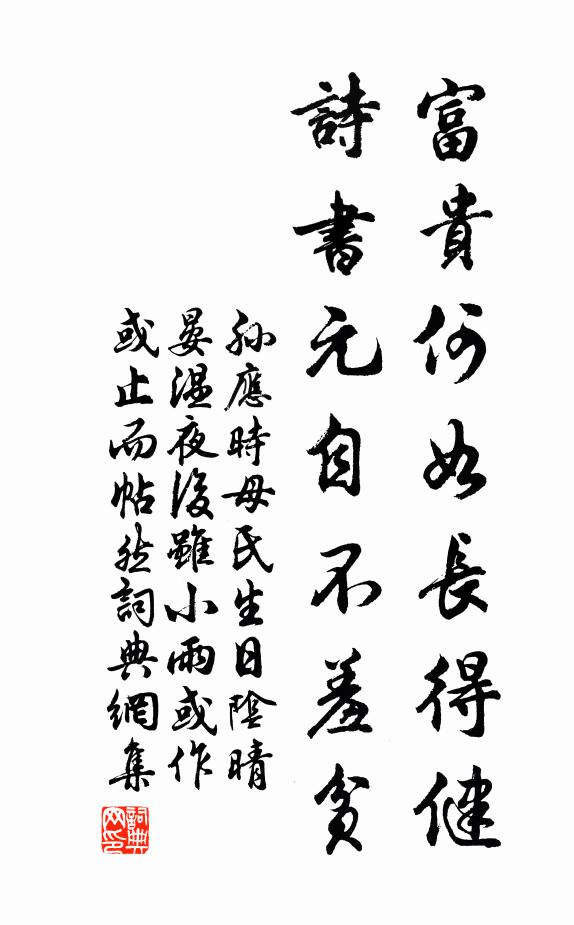 富貴何如長得健
詩書元自不羞貧
孫應時母氏生日陰晴
晏溫夜後雖小雨或作
或止而帖然詞典網集
詞典网印